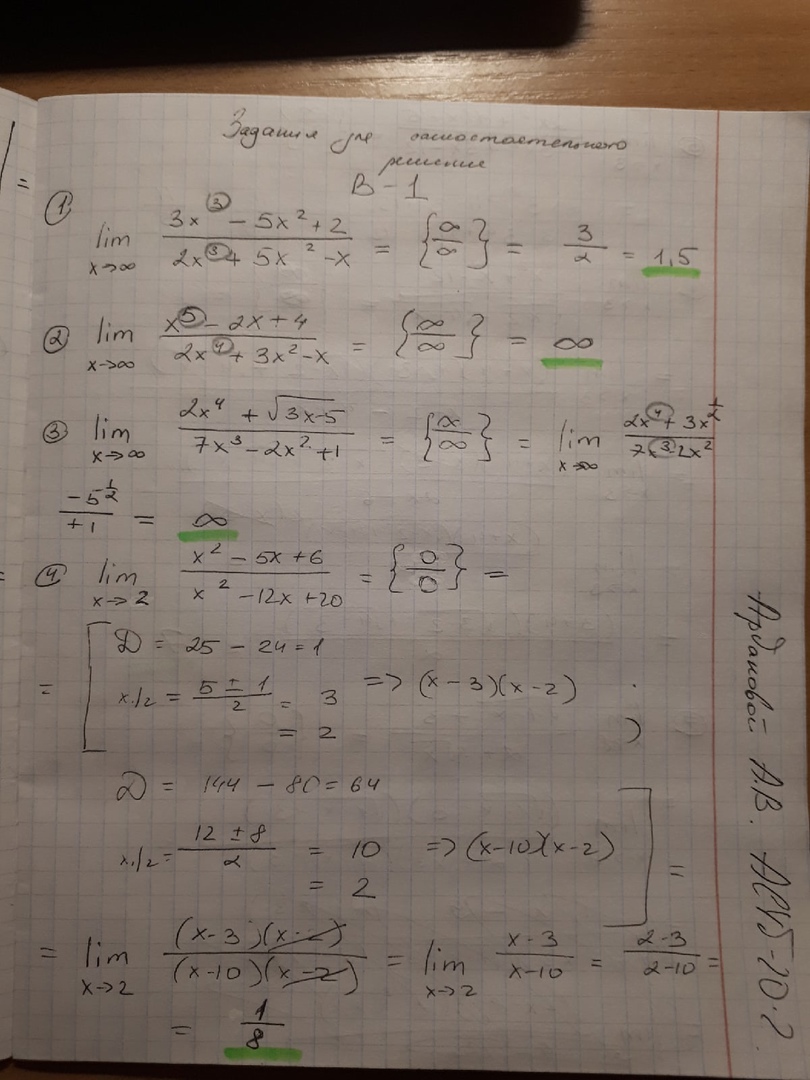 Задания для самостоятельного
решение
В-1
① lim x→∞ (3x³ - 5x² + 2)/(2x³ + 5x² - x) = {∞/∞} = 3/2 = 1,5
② lim x→∞ (x⁵ - 2x + 4)/(2x⁴ + 3x² - x) = {∞/∞} = ∞
③ lim x→∞ (2x⁴ + √(3x-5))/(7x³ - 2x² + 1) = {∞/∞} = lim x→∞ (2x⁴ + 3x^(1/2))/(7x³ - 2x²)
(-5^(1/2))/(+1) = ∞
④ lim x→2 (x² - 5x + 6)/(x² - 12x + 20) = {0/0} =
= [ D = 25 - 24 = 1
x₁/₂ = (5 ± 1)/2 = 3 => (x-3)(x-2)
= 2 )
D = 144 - 80 = 64
x₁/₂ = (12 ± 8)/2 = 10 => (x-10)(x-2) ] =
= 2
= lim x→2 ((x-3)(x-2))/((x-10)(x-2)) = lim x→2 (x-3)/(x-10) = (2-3)/(2-10) =
= 1/8